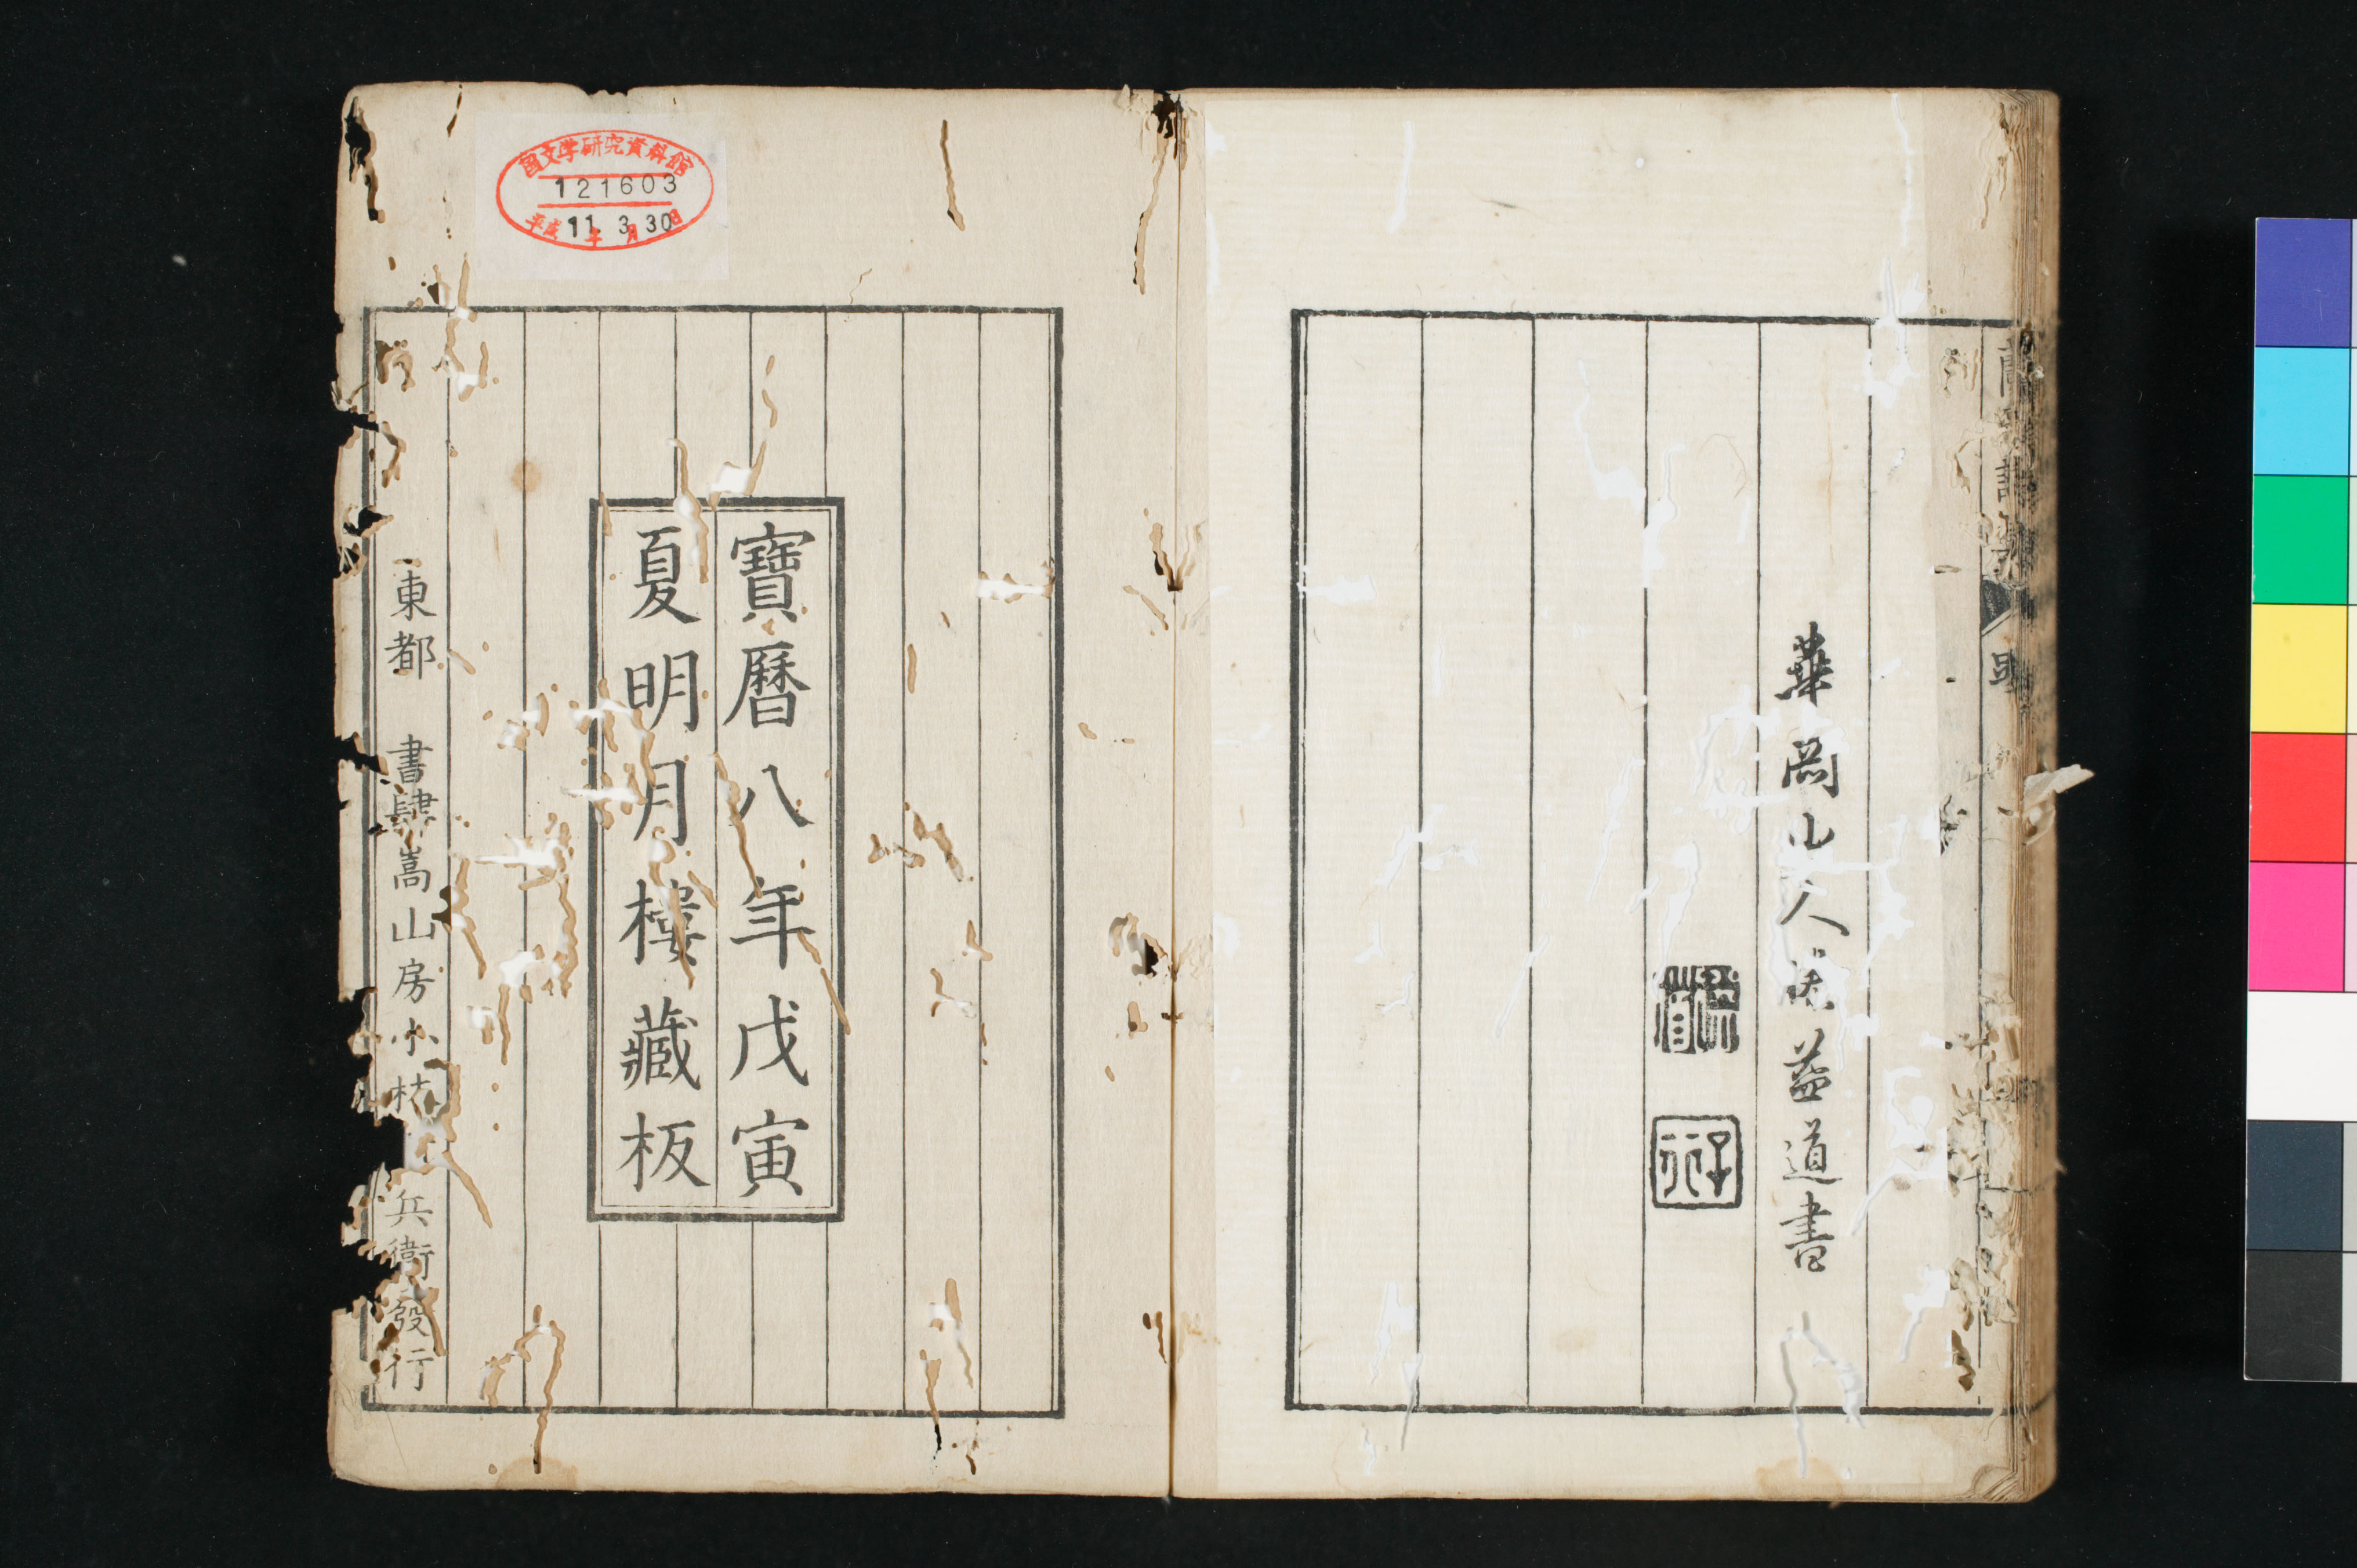 華岡山人
益道書
寶曆八年戊寅
夏明月樓藏板
東都 書肆嵩山房小林
兵衛發行
国文学研究資料館
121603
平成11年3月30日